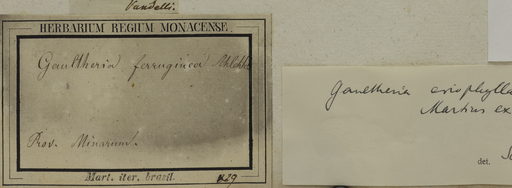 Vandelli.
HERBARIUM REGIUM MONACENSE.
Gaultheria ferruginea Schlchtd
Prov. Minarum.
Mart. iter. brasil. 829
Gaultheria eriophylla
Martius ex
det.